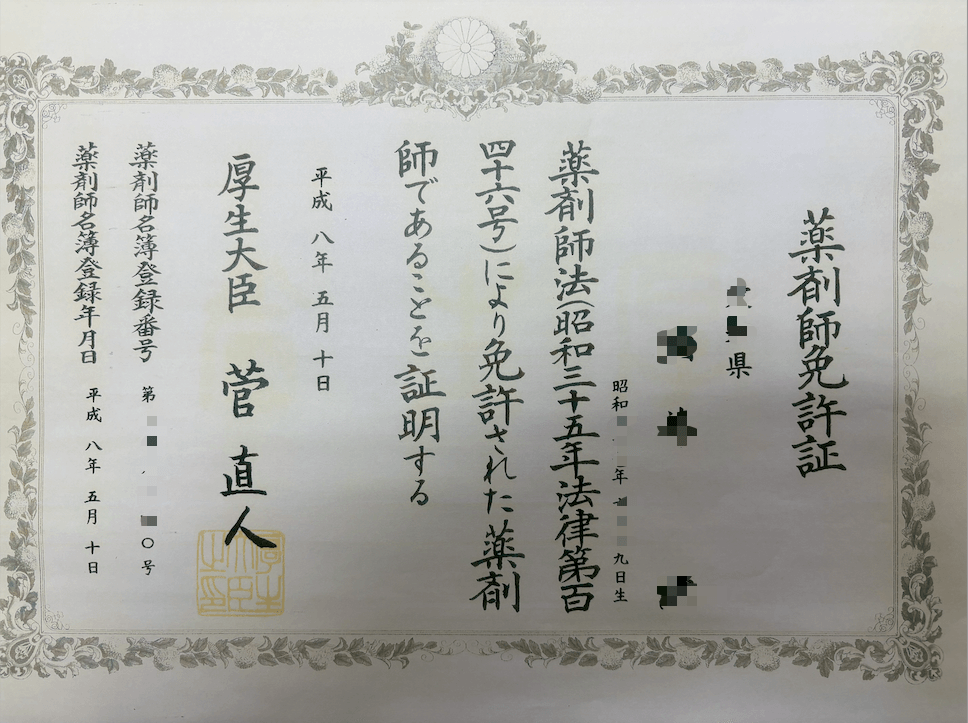 薬剤師免許証
県
昭和 年 九日生
薬剤師法(昭和三十五年法律第百
四十六号)により免許された薬剤
師であることを証明する
平成 八年 五月 十日
厚生大臣 菅 直人
厚生大臣之印
薬剤師名簿登録番号 第 〇号
薬剤師名簿登録年月日 平成 八年 五月 十日